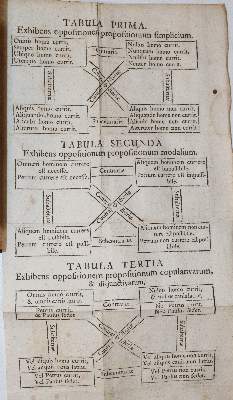 TABULA PRIMA.
Exhibens oppositiones propositionum simplicium.
Omnis homo currit.
Semper homo currit.
Ubique homo currit.
Uterque homo currit.
Contrariæ
Nullus homo currit.
Nunquam homo currit.
Nullibi homo currit.
Neuter homo currit.
Subalternæ
Subalternæ
Aliquis homo currit.
Aliquando homo currit.
Alicubi homo currit.
Alteruter homo currit.
Subcontrariæ
Aliquis homo non currit.
Aliquando homo non currit.
Alicubi homo non currit.
Alteruter homo non currit.
TABULA SECUNDA
Exhibens oppositionum propositionum modalium.
Omnem hominem currere
est necesse.
Petrum currere est necesse.
Contrariæ
Aliquem hominem currere
est impossibile.
Petrum currere est impossi-
bile.
Subalternæ
Subalternæ
Aliquem hominem currere
est possibile.
Petrum currere est possi-
bile.
Subcontrariæ
Aliquem hominem non cur-
rere est possibile.
Petrum non currere est possi-
bile.
TABULA TERTIA
Exhibens oppositionem propositionum copulativarum,
& disjunctivarum.
Omnis homo currit,
&
Petrus currit,
& Paulus sedet.
Contrariæ
Nullus homo currit,
&
Subalternæ
Subalternæ
Vel aliquis homo currit,
Vel aliquis homo sedet.
Vel Petrus currit,
Vel Paulus sedet.
Subcontrariæ
Vel aliquis homo non currit,
Vel aliquis homo non sedet.
Vel Petrus non currit,
Vel Paulus non sedet.